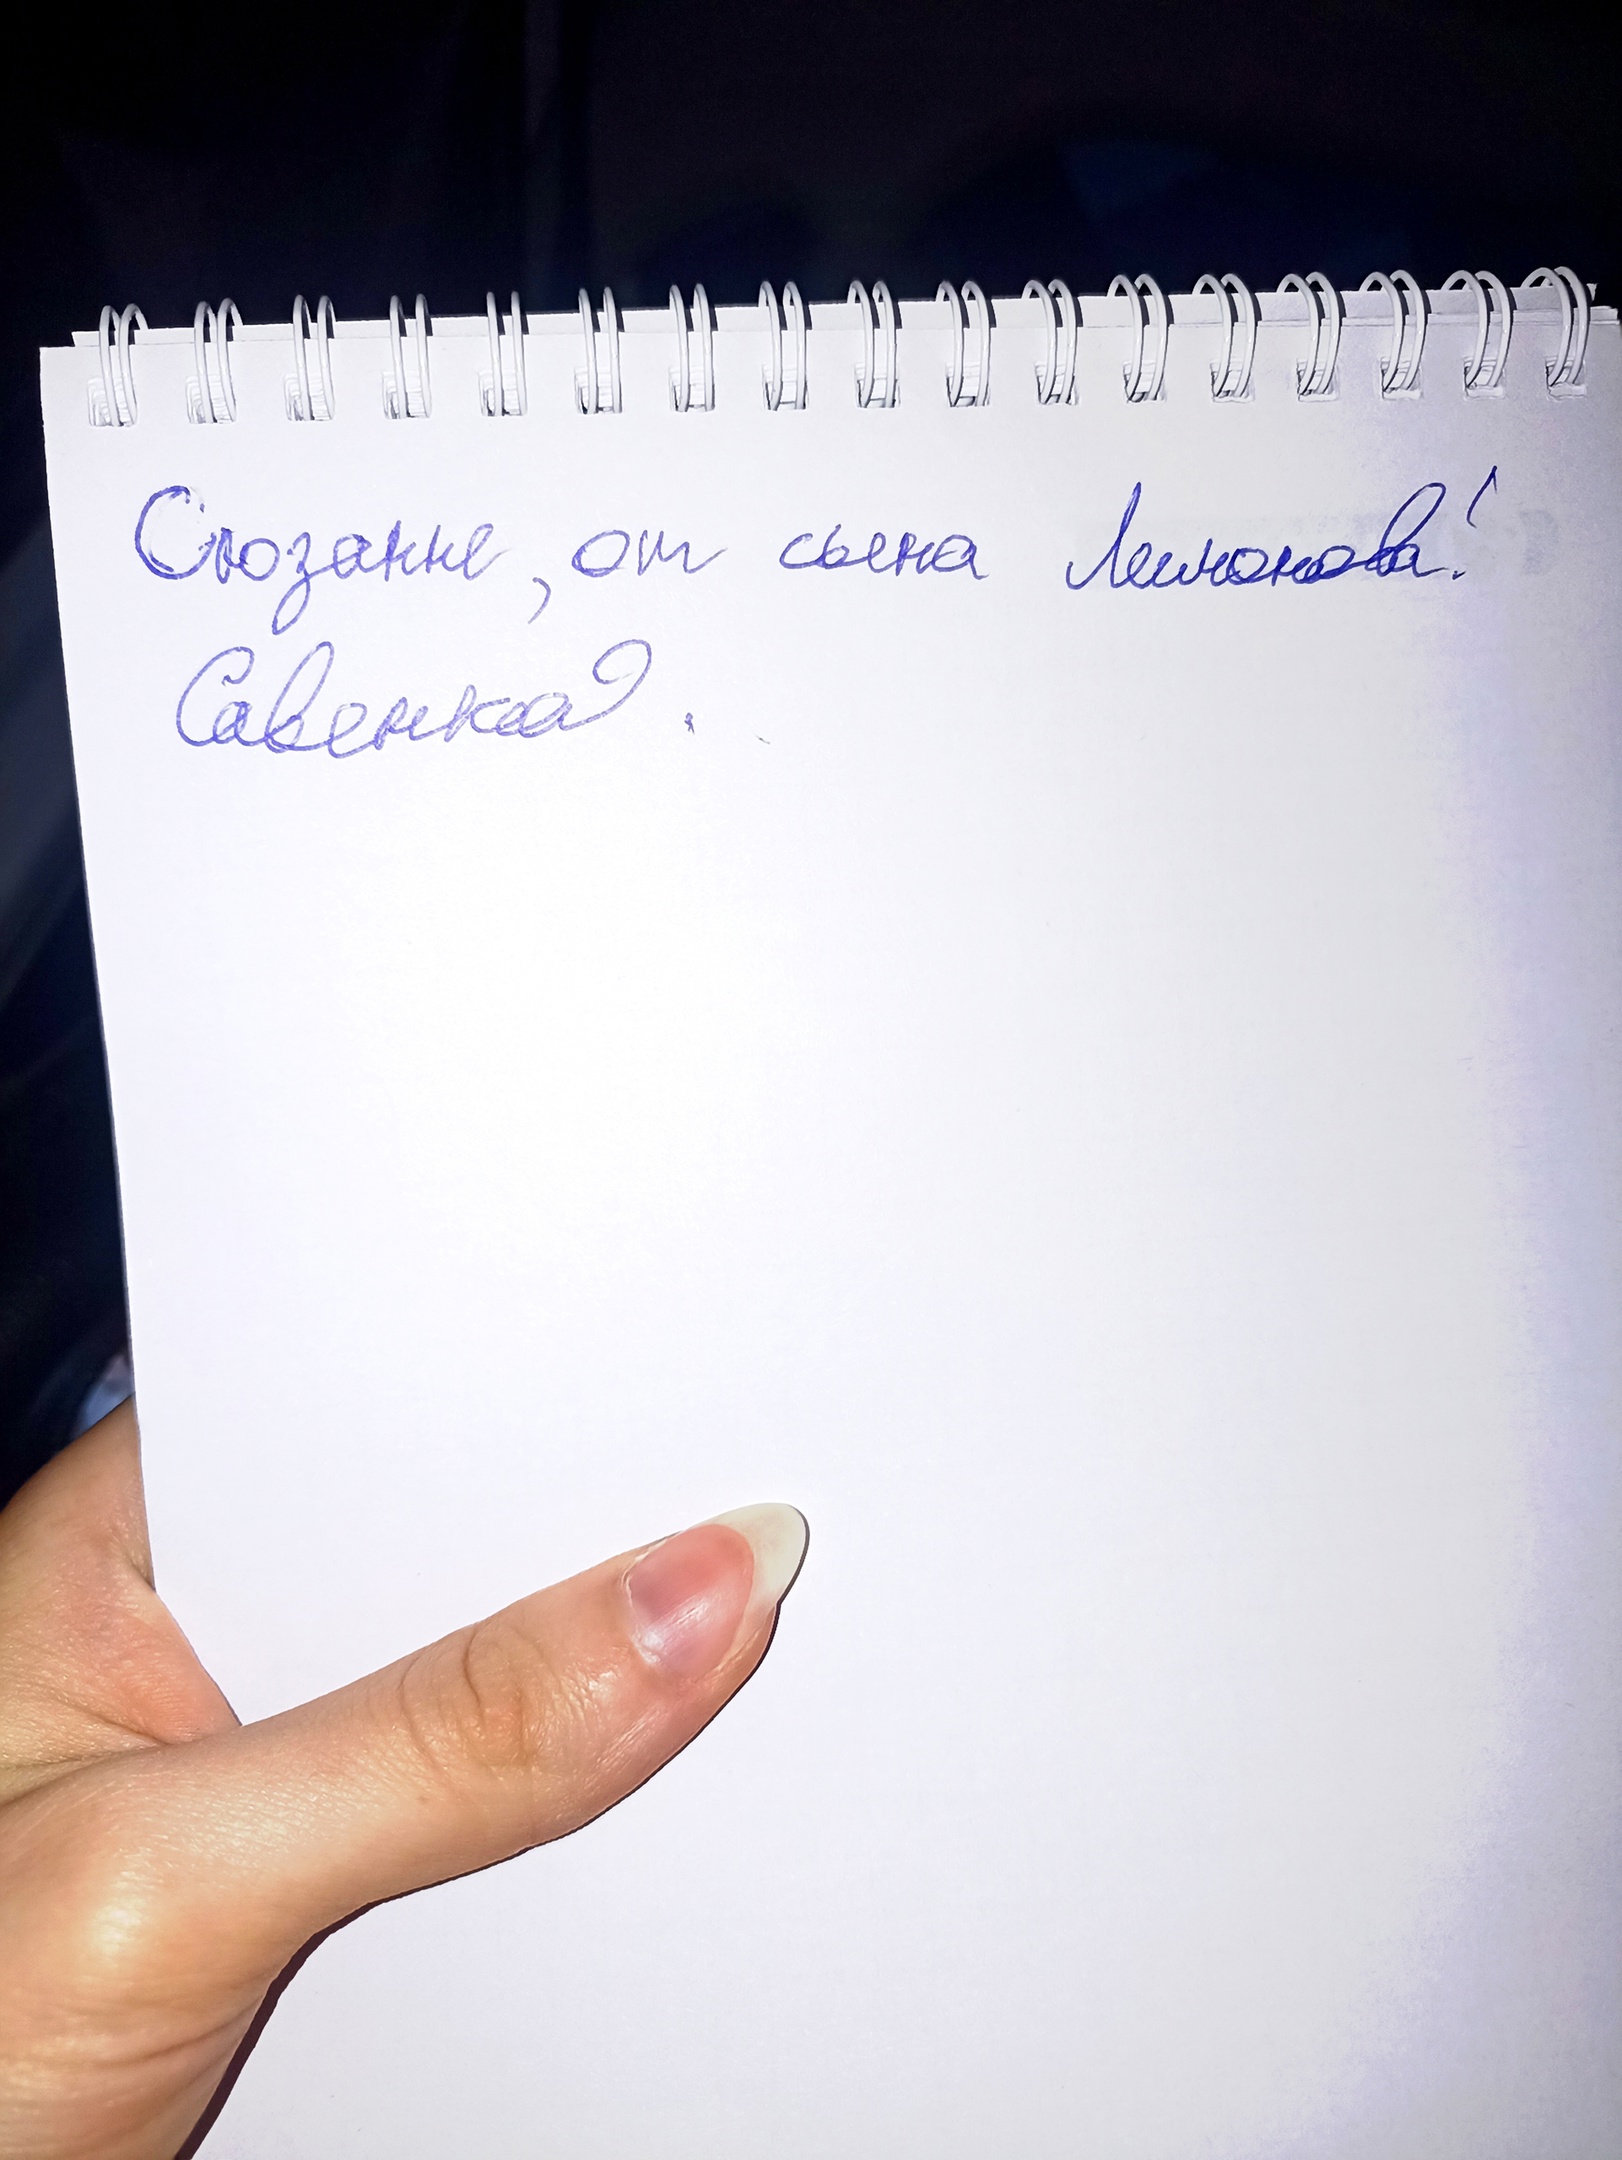 Сюзанне, от сына Лимонова!
Савенко.